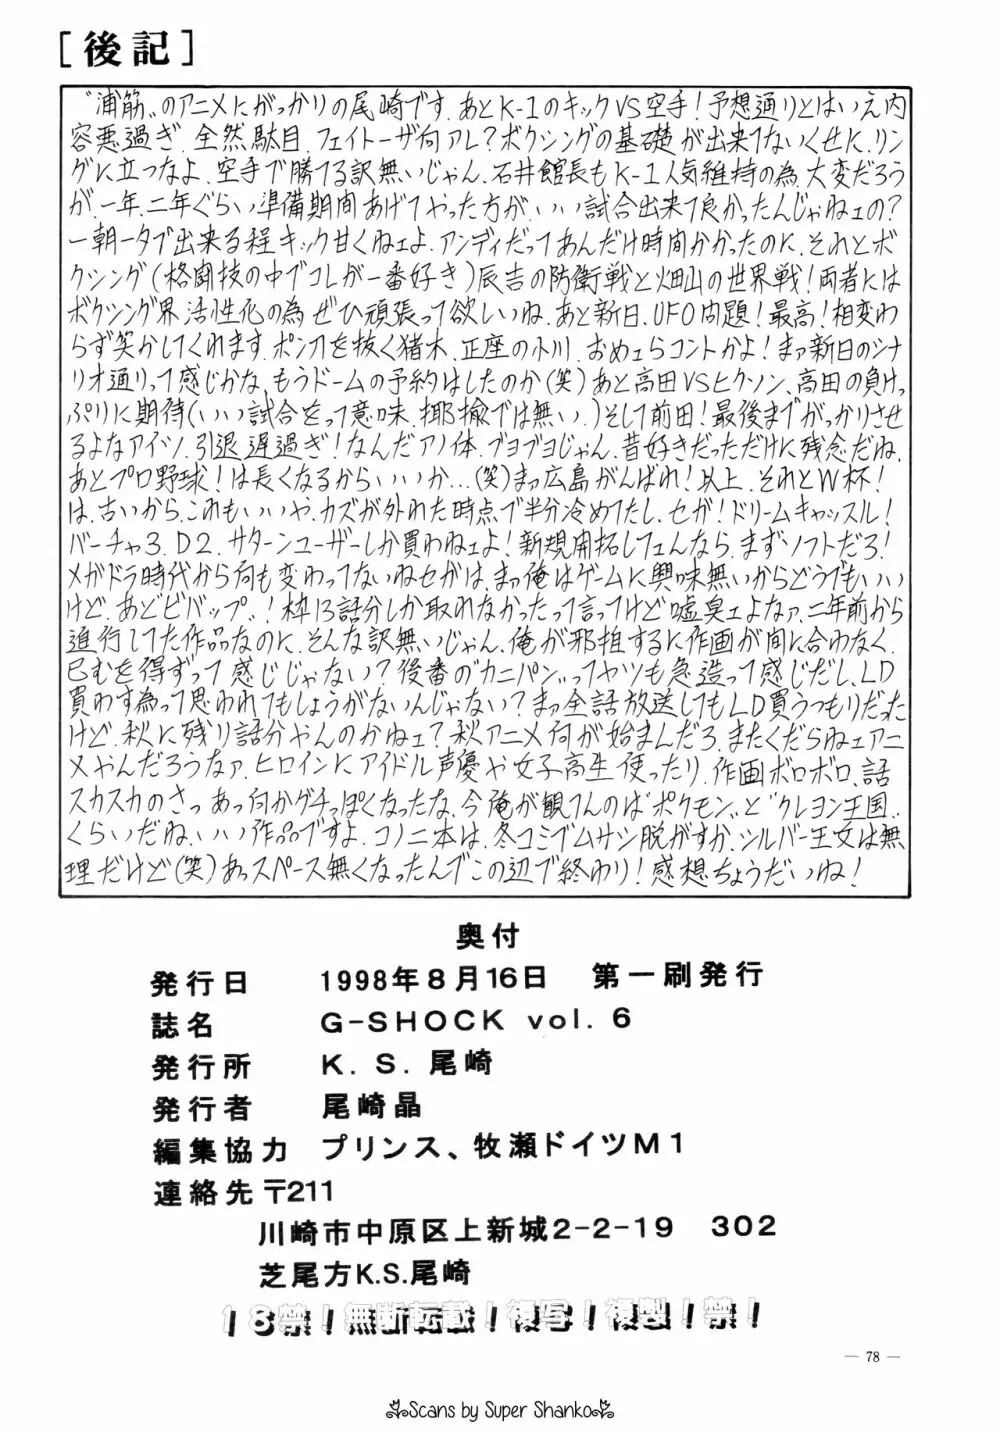 [後記]
“浦筋”のアニメにがっかりの尾崎です。あとK-1のキックVS空手!予想通りとはいえ内
容悪過ぎ。全然駄目。フェイトーザ何アレ?ボクシングの基礎が出来てないくせに、リン
グに立つなよ。空手で勝てる訳無いじゃん。石井館長もK-1人気維持の為、大変だろう
が、一年、二年ぐらい準備期間あげてやった方が、いい試合出来て良かったんじゃねェの?
一朝一夕で出来る程キック甘くねェよ。アンディだってあんだけ時間かかったのに。それとボ
クシング(格闘技の中でコレが一番好き)辰吉の防衛戦と畑山の世界戦!両者には
ボクシング界活性化の為ぜひ頑張って欲しいね。あと新日、UFO問題!最高!相変わ
らず笑かしてくれます。ポン刀を抜く猪木、正座の小川。おめェらコントかよ!まァ新日のシナ
リオ通りって感じかな。もうドームの予約はしたのか(笑)あと高田VSヒクソン、高田の負けっ
ぷりに期待(いい試合をって意味、揶揄では無い。)そして前田!最後までがっかりさせ
るよなアイツ。引退遅過ぎ!なんだアノ体。ブヨブヨじゃん。昔好きだっただけに残念だね。
あとプロ野球!は長くなるからいいか…(笑)まァ広島がんばれ!以上。それとW杯!
は、古いから、これもいいや。カズが外れた時点で半分冷めてたし。セガ!ドリームキャッスル!
バーチャ3、D2、サターンユーザーしか買わねェよ!新規開拓してェんなら、まずソフトだろ!
メガドラ時代から何も変わってないねセガは。まァ俺はゲームに興味無いからどうでもいい
けど。あとビバップ!枠13話分しか取れなかったって言ってけど嘘臭ェよなァ、二年前から
進行してた作品なのに、そんな訳無いじゃん。俺が邪推するに作画が間に合わなく、
已むを得ずって感じじゃない?後番の“カニパン”ってヤツも急造って感じだし、LD
買わす為って思われてもしょうがないんじゃない?まァ全話放送してもLD買うつもりだった
けど。秋に残り話分やんのかねェ?秋アニメ何が始まんだろ、またくだらねェアニ
メやんだろうなァ、ヒロインにアイドル声優や女子高生使ったり、作画ボロボロ、話
スカスカのさっ。あっ何かグチっぽくなったな。今俺が観てんのは“ポケモン”と“クレヨン王国”
くらいだね。いい作品ですよ。コノ二本は。冬コミでムサシ脱がすか、シルバー王女は無
理だけど(笑)あっスペース無くなったんでこの辺で終わり!感想ちょうだいね!
奥付
発行日 1998年8月16日 第一刷発行
誌名 G-SHOCK vol. 6
発行所 K. S. 尾崎
発行者 尾崎晶
編集協力 プリンス、牧瀬ドイツM1
連絡先 〒211
川崎市中原区上新城2-2-19 302
芝尾方K.S.尾崎
18禁!無断転載!複写!複製!禁!
— 78 —
Scans by Super Shanko